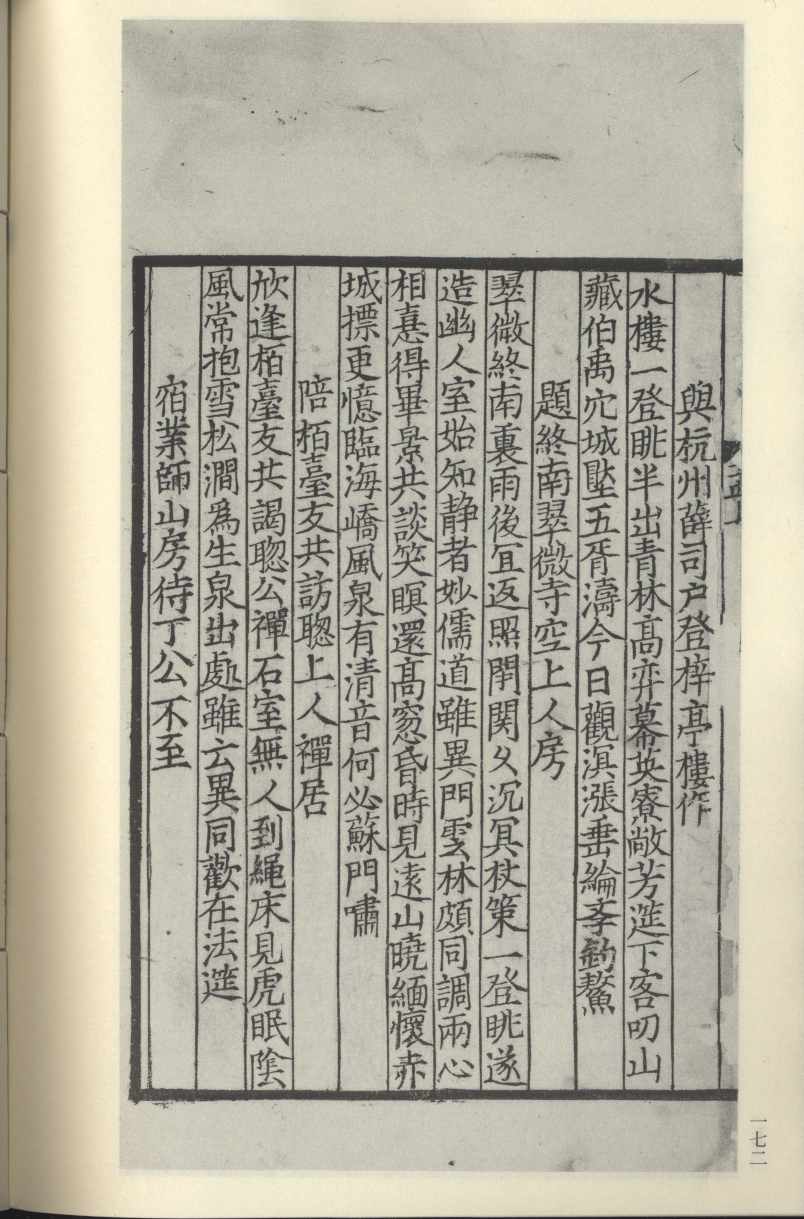 與杭州薛司戶登樟亭樓作
水樓一登眺半出青林髙弈幕英寮敞芳筵下客叨山
藏伯禹穴城墜五胥濤今日觀溟漲垂綸𡥉釣鰲
題終南翠微寺空上人房
翠微終南裏雨後冝返照閉関久沉冥杖策一登眺遂
造幽人室始知靜者妙儒道雖異門雲林頗同調兩心
相憙得畢景共談笑暝還髙窓昏時見遠山曉緬懷赤
城摽更憶臨海嶠風泉有清音何必蘇門嘯
陪栢臺友共訪聦上人禪居
欣逢栢臺友共謁聦公禪石室無人到繩床見虎眠陰
風常抱雪松澗爲生泉出處雖云異同歡在法筵
宿業師山房待丁公不至
一七二